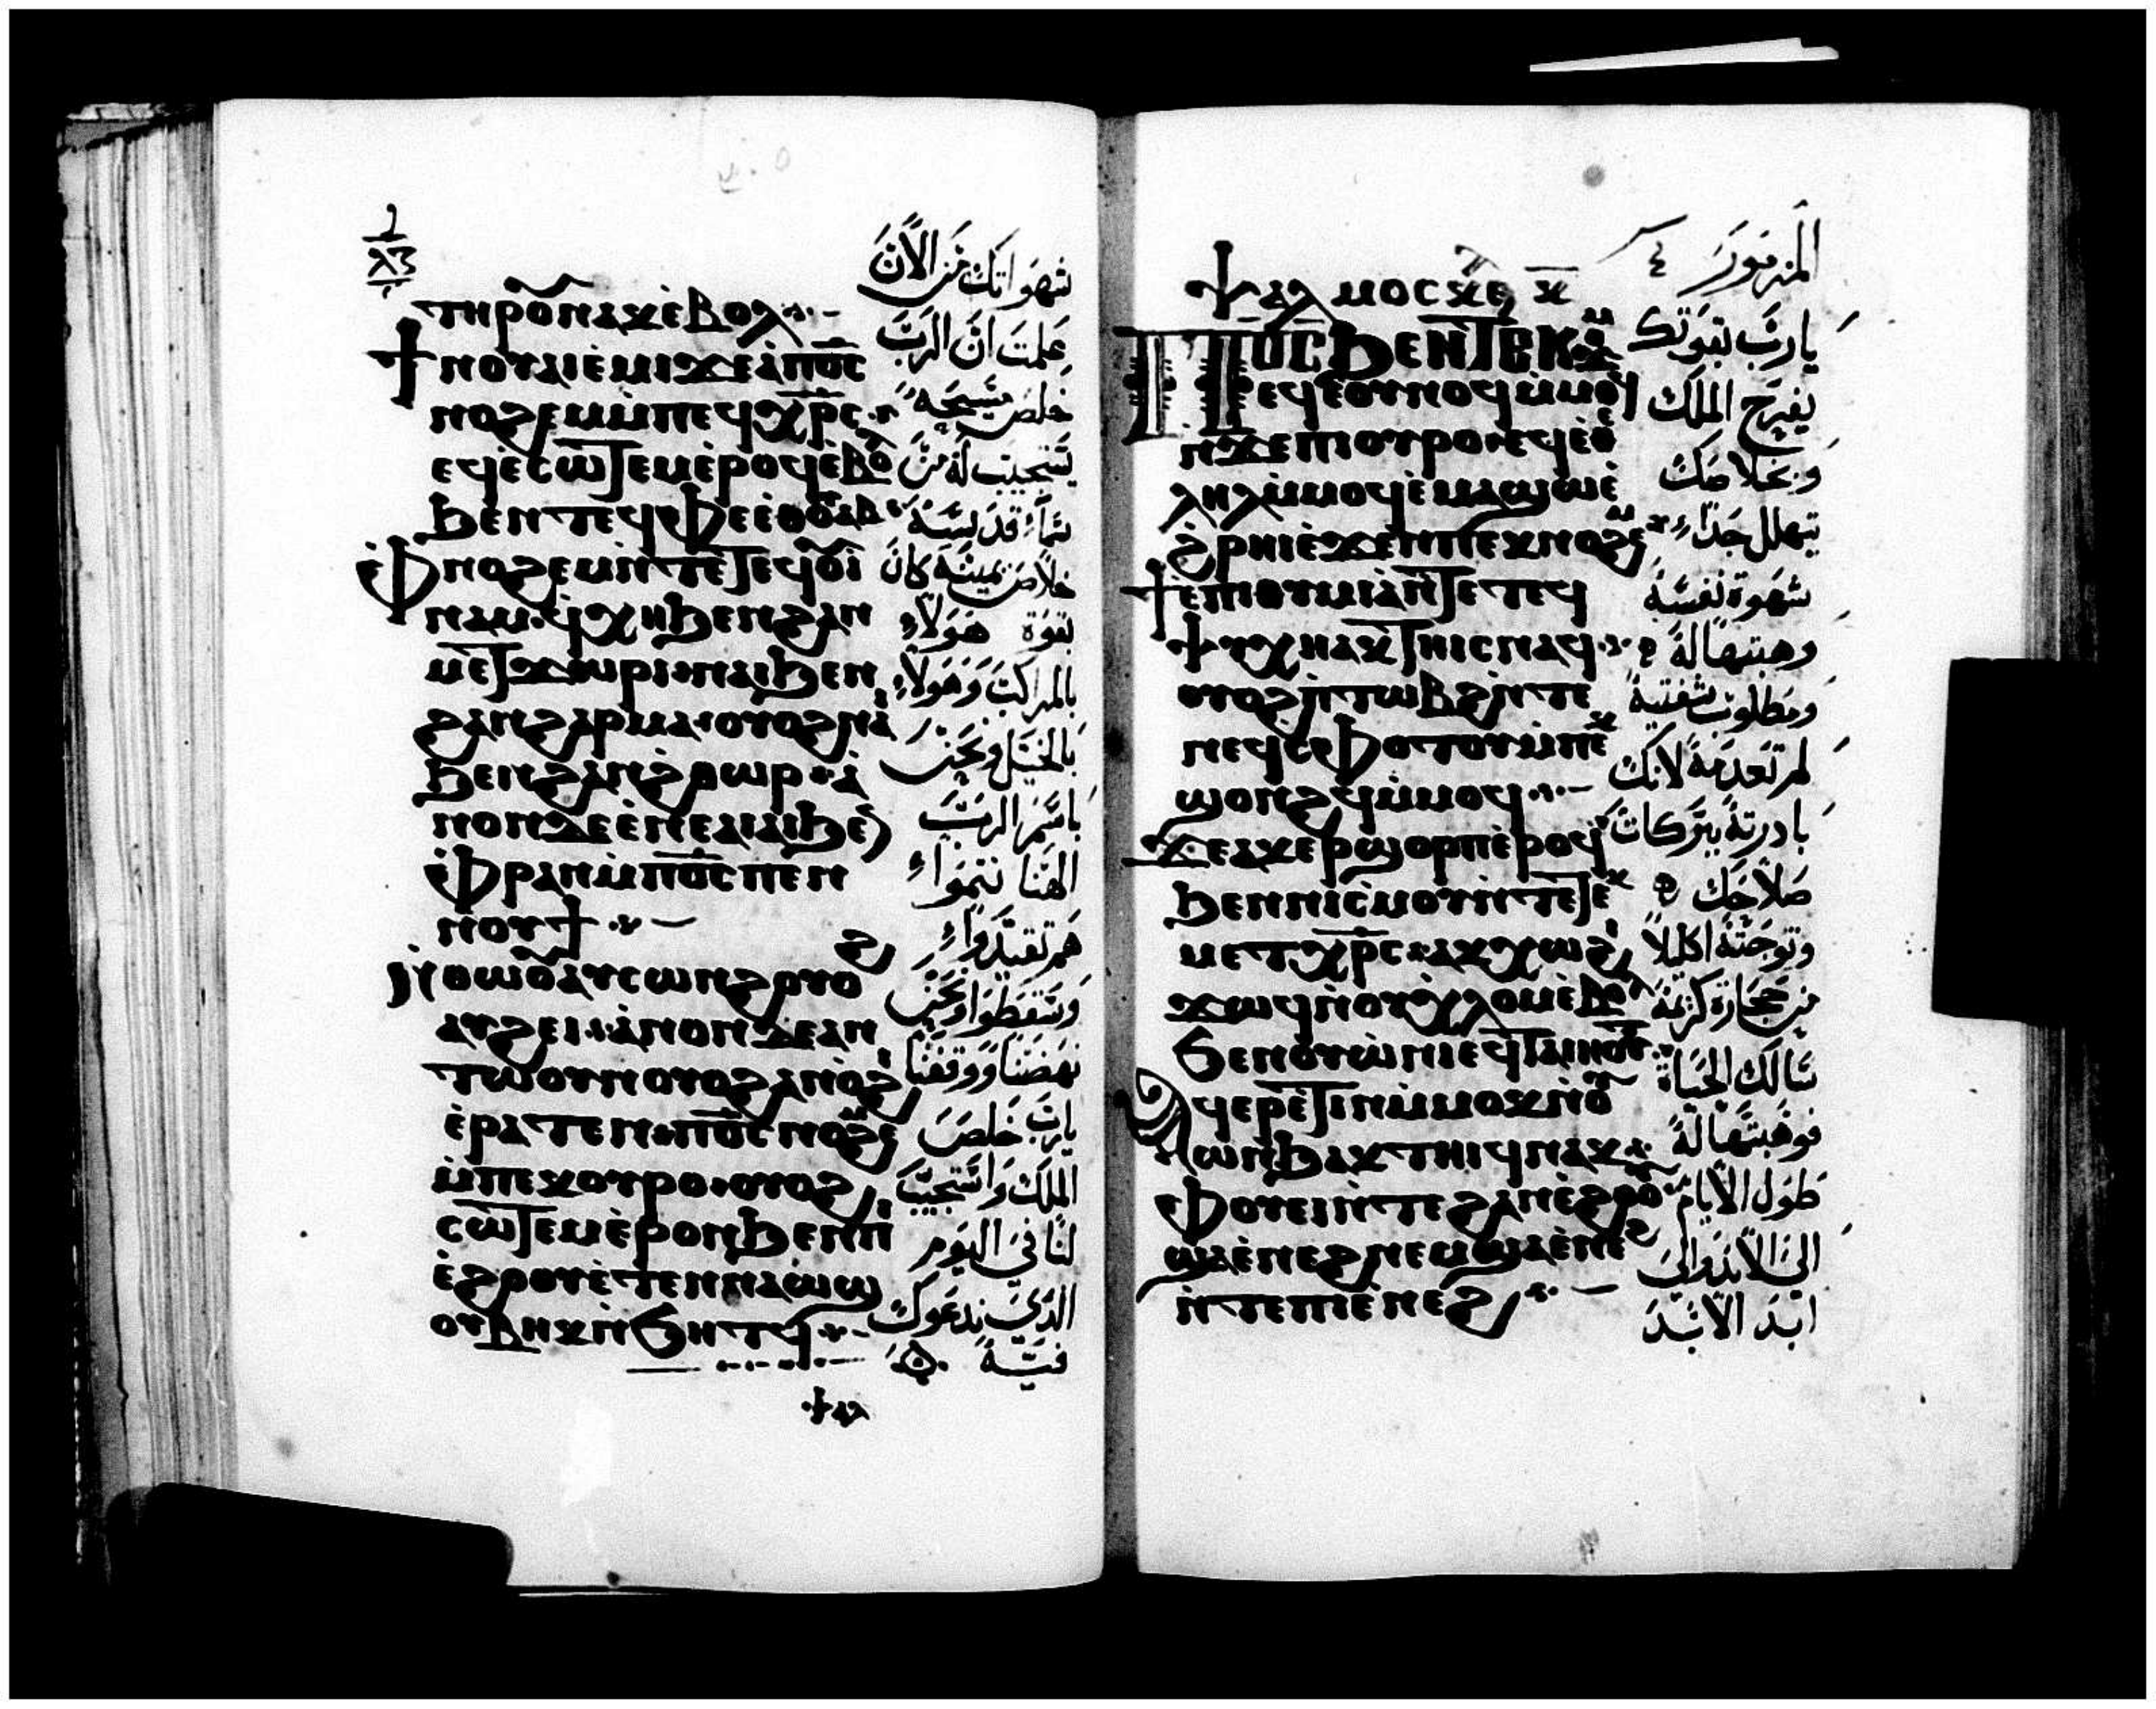 ⲧⲏⲣⲟⲩ ⲛⲁⲕ ⲉ̀ⲃⲟⲗ
ϯⲛⲟⲩ ⲁⲓⲉ̀ⲙⲓ ϫⲉ ⲁ̀ ⲡ̅ⲟ̅ⲥ̅
ⲛⲟϩⲉⲙ ⲙ̀ⲡⲉϥⲭ̅ⲣ̅ⲥ̅
ⲉϥⲉ̀ⲥⲱⲧⲉⲙ ⲉ̀ⲣⲟϥ ⲉ̀ⲃⲟ
ϧⲉⲛ ⲧⲉϥⲫⲉ ⲉ̀ⲑⲟⲩⲁⲃ
ⲉ̀ⲫⲛⲟϩⲉⲙ ⲛ̀ⲧⲉ ⲧⲉϥⲟⲩⲓ
ⲛⲁⲙ ϥ̀ⲭⲏ ϧⲉⲛ ϩⲁⲛ
ⲙⲉⲧϫⲱⲣⲓ ⲛⲁⲓ ϧⲉⲛ
ϩⲁⲛϩⲁⲣⲙⲁ ⲟⲩⲟϩ ⲛⲁⲓ
ϧⲉⲛ ϩⲁⲛϩ̀ⲑⲱⲣ ⲁ̀
ⲛⲟⲛ ⲇⲉ ⲉ̀ⲛⲉⲁⲓⲁⲓ ϧⲉⲛ
ⲉ̀ⲫⲣⲁⲛ ⲙ̀ⲡ̅ⲟ̅ⲥ̅ ⲡⲉⲛ
ⲛⲟⲩϯ
ⲛ̀ⲑⲱⲟⲩ ⲁⲩⲥⲱⲛϩ ⲟⲩⲟϩ
ⲁⲩϩⲉⲓ ⲁ̀ⲛⲟⲛ ⲇⲉ ⲁⲛ
ⲧⲱⲟⲩⲛ ⲟⲩⲟϩ ⲁⲛⲟϩⲓ
ⲉ̀ⲣⲁⲧⲉⲛ ⲡ̅ⲟ̅ⲥ̅ ⲛⲟϩⲉⲙ
ⲙ̀ⲡⲉⲕⲟⲩⲣⲟ ⲟⲩⲟϩ
ⲥⲱⲧⲉⲙ ⲉ̀ⲣⲟⲛ ϧⲉⲛ ⲡⲓ
ⲉ̀ϩⲟⲟⲩ ⲉ̀ⲧⲉⲛⲛⲁⲱϣ
ⲟⲩⲃⲏⲕ ⲛ̀ϧⲏⲧϥ
شهواتك من الآن
علمت ان الرب
خلص مسيحه
يستجيب له من
سماء قدسه
خلاص يمينه كان
بقوة هولاء
بالمراكب وهولاء
بالخيل ونحن
باسم الرب
الهنا ننموا
هم تقيدوا
وسقطوا ونحن
نهضنا ووقفنا
يارب خلص
الملك واستجيب
لنا في اليوم
الذي ندعوك
فيه
ⲯⲁⲗⲙⲟⲥ ⲕ
ⲡ̅ⲟ̅ⲥ̅ ϧⲉⲛ ⲧⲉⲕϫⲟⲙ
ⲉϥⲉ̀ⲟⲩⲛⲟϥ ⲙ̀ⲙⲟϥ
ⲛ̀ϫⲉ ⲡⲓⲟⲩⲣⲟ ⲉϥⲉ̀ⲑⲉ
ⲗⲏⲗ ⲙ̀ⲙⲟϥ ⲉ̀ⲙⲁϣⲱ ⲉ̀
ϩ̀ⲣⲏⲓ ⲉ̀ϫⲉⲛ ⲡⲉⲕⲛⲟϩⲉⲙ
ⲉ̀ⲡⲓⲑⲩⲙⲓⲁ ⲛ̀ⲧⲉ ⲧⲉϥ
ⲯⲩⲭⲏ ⲁⲕⲧⲏⲓⲥ ⲛⲁϥ
ⲟⲩⲟϩ ⲡ̀ⲧⲱⲃϩ ⲛ̀ⲧⲉ
ⲛⲉϥⲥ̀ⲫⲟⲧⲟⲩ ⲙ̀ⲡⲉⲕ
ϣⲟⲛϩϥ ⲙ̀ⲙⲟϥ
ϫⲉ ⲁⲕⲉⲣϣⲟⲣⲡ ⲉ̀ⲣⲟϥ
ϧⲉⲛ ⲛⲓⲥ̀ⲙⲟⲩ ⲛ̀ⲧⲉ ⲧⲉⲕ
ⲙⲉⲧⲭ̅ⲣ̅ⲥ̅ ⲁⲕⲭⲱ ϩⲓ
ϫⲱϥ ⲛ̀ⲟⲩⲭⲗⲟⲙ ⲉ̀ⲃⲟⲗ
ϧⲉⲛ ⲟⲩⲱ̀ⲛⲓ ⲉϥⲧⲁⲓⲏⲟⲩⲧ
ⲁϥⲉⲣⲉ̀ⲧⲓⲛ ⲙ̀ⲙⲟⲕ ⲛ̀ⲟⲩ
ⲱⲛϧ ⲁⲕⲧⲏⲓϥ ⲛⲁϥ
ⲉ̀ⲫⲟⲩⲉⲓ ⲛ̀ⲧⲉ ϩⲁⲛⲉ̀ϩⲟⲟⲩ
ϣⲁ ⲉ̀ⲛⲉϩ ⲛⲉⲙ ϣⲁ ⲉ̀ⲛⲉϩ
ⲛ̀ⲧⲉ ⲡⲓⲉ̀ⲛⲉϩ
المزمور
يارب بقوتك
يفرح الملك
وبخلاصك
يتهلل جدا
شهوة نفسه
وهبتها له
ومطلوب شفتيه
لم تعدمه لانك
بادرته ببركات
صلاحك
وتوجته اكليلا
من حجارة كريمة
سالك الحياة
فوهبتها له
طول الايام
الى الابد والى
ابد الابد